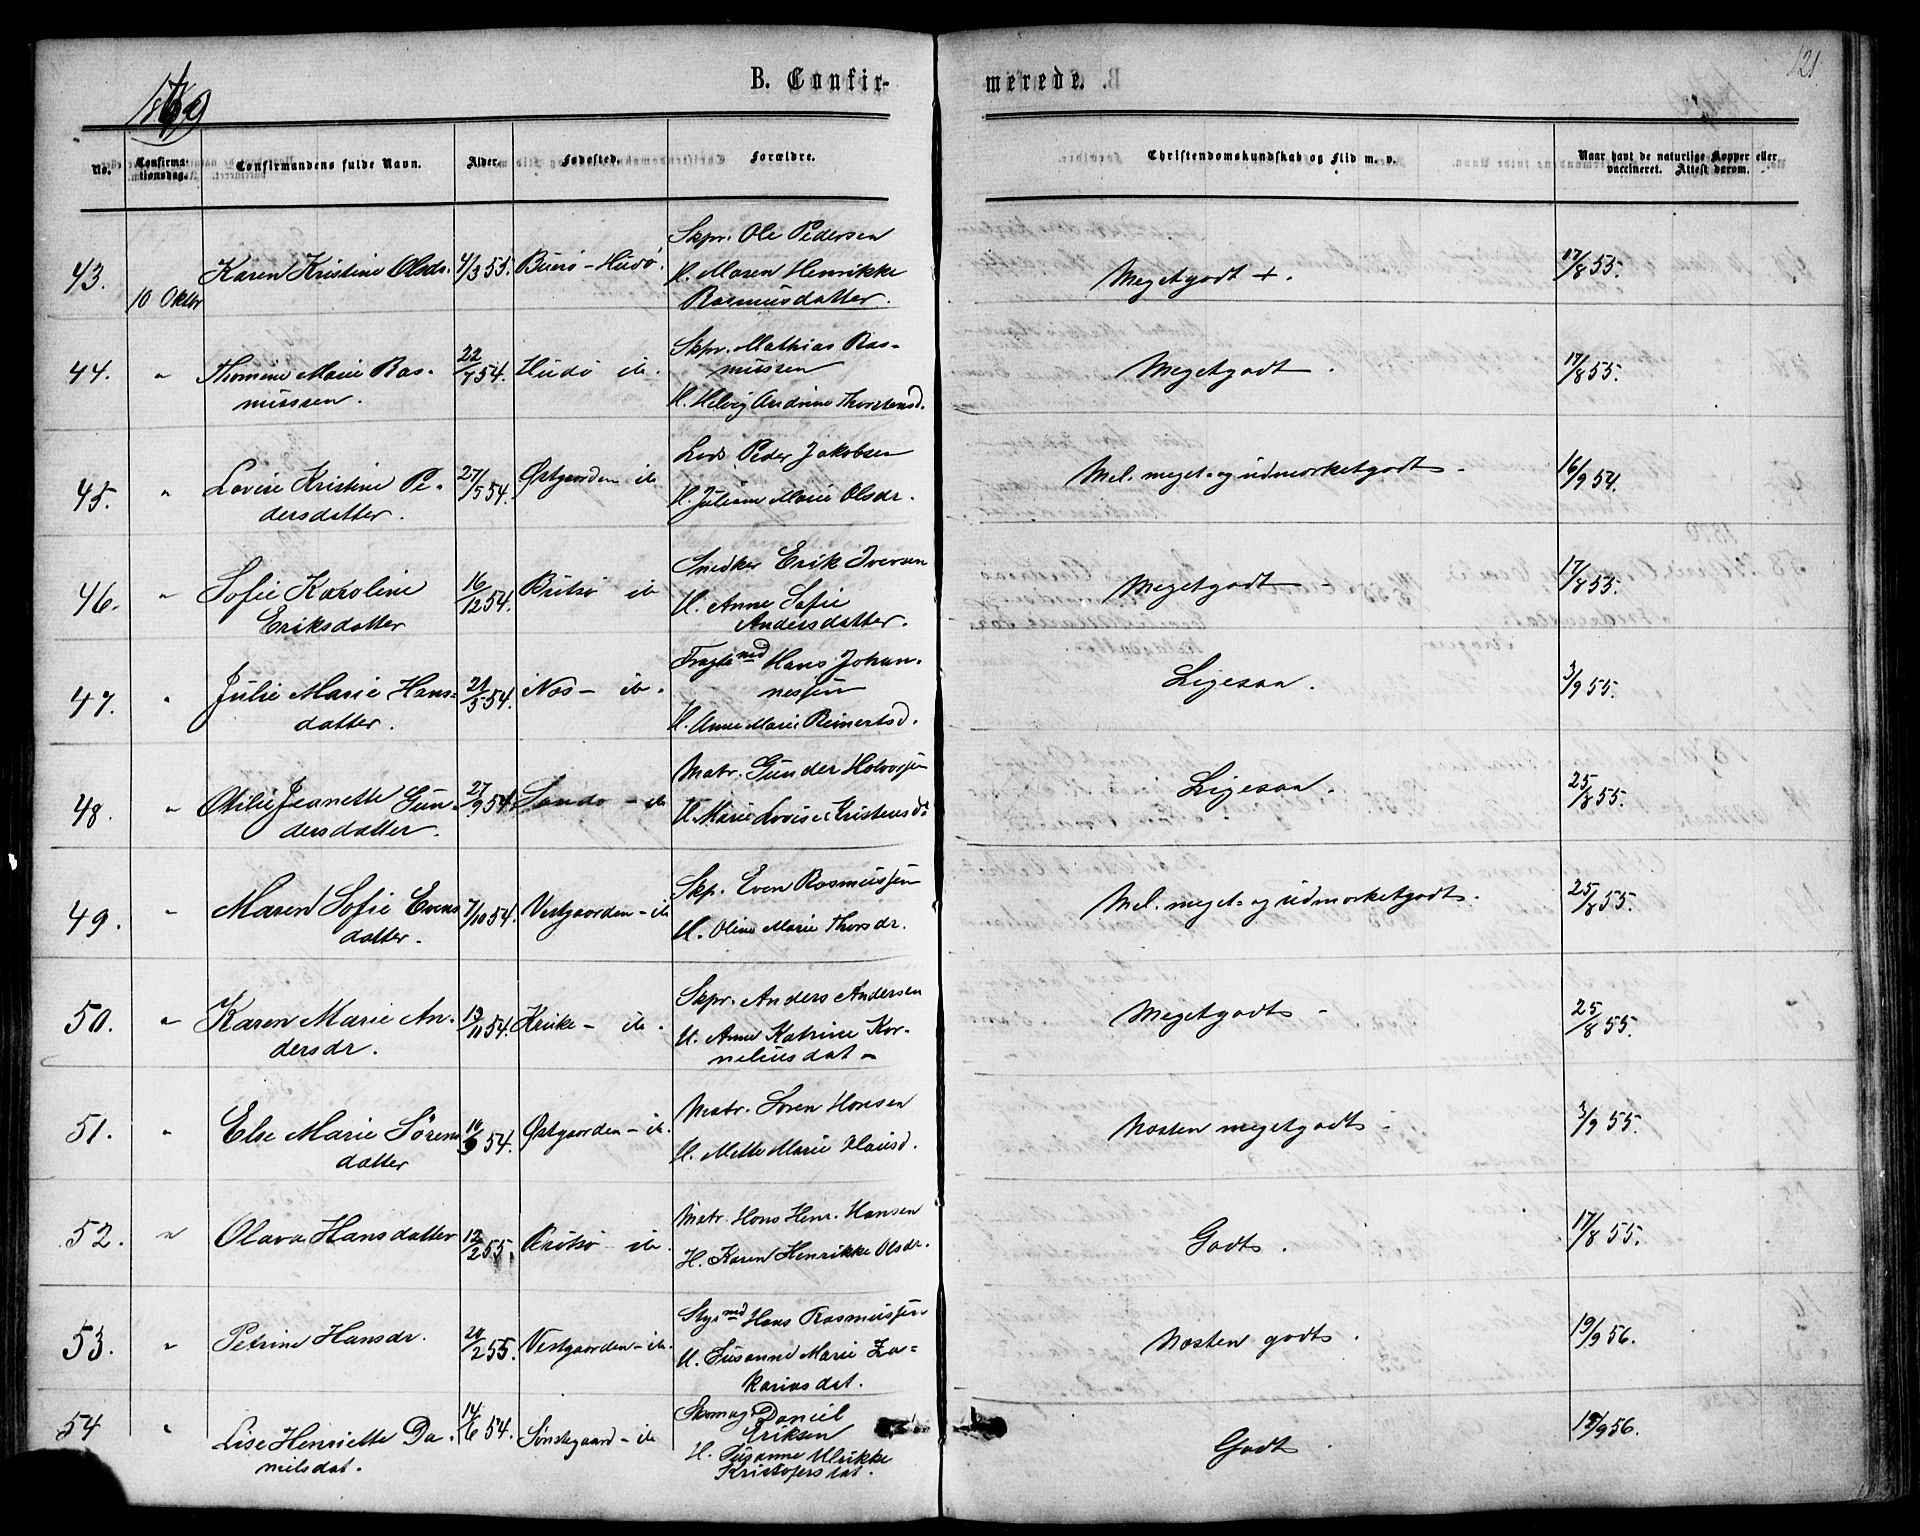 1869
B. Confir-
merede.
121
No.
Confirma-
tionsdag.
Confirmandens fulde Navn.
Alder.
Fødested.
Forældre.
Christendomskundskab og Flid m. v.
Naar havt de naturlige Kopper eller
vaccineret. Attest derom.
Skpr. Ole Pedersen
43. Karen Kristine Olsdr. 4/3 55. Buerø - Hudø. H. Maren Henrikke Megetgodt +. 17/8 55.
10 Oktbr Rasmusdatter.
Skpr. Mathias Ras-
44. " Thomine Marie Ras- 22/7 54. Hudø ib. mussen Megetgodt. 17/8 55.
mussen. H. Helvig Andrine Thorstensd.
Lods Peder Jakobsen
45. " Lovise Kristine Pe- 27/5 54. Østgaarden ib Mel. meget- og udmærketgodt. 16/9 54.
dersdatter. H. Juliane Marie Olsdr.
Snedker Erik Iversen
46. " Sofie Karoline 16/12 54. Buksø ib H. Anne Sofie Megetgodt - 17/8 55.
Eriksdatter Andersdatter.
Hans Johan-
47. " Julie Marie Hans- 21/5 54. Næs - ib. nessen Ligesaa. 3/9 55.
datter. H. Anne Marie Reinertsd.
Matr. Gunder Halvorsen
48. " Otilie Jeanette Gun- 27/9 54. Sandø - ib H. Marie Lovise Kristensdt Ligesaa. 25/8 55.
dersdatter.
Skp. Even Rasmussen
49. " Maren Sofie Evens 7/10 54. Vestgaarden - ib Mel. meget- og udmærketgodt. 25/8 55.
datter. H. Oline Marie Thorsdr.
Skpr. Anders Andersen
50. " Karen Marie An- 13/11 54. Kruke - ib. H. Anne Katrine Kor- Megetgodt - 25/8 55.
dersdr. neliusdat -
Matr. Søren Hansen
51. " Else Marie Sørens 54. Østgaarden - ib. Næsten megetgodt - 3/9 55.
datter H. Mette Marie Hansd.
Matr. Hans Henr. Hansen
52. " Olava Hansdatter 12/2 55. ib. H. Karen Henrikke Olsdr. Godt. 17/8 55.
Hans Rasmussen
53. " Petrine Hansdr. 20/2 55. Vestgaarden - ib. H. Susanne Marie Za- Næsten godt. 19/9 56.
kariasdat.
Daniel
54 " Lise Henriette Da- 14/6 54. Sønstegaard - ib Eriksen Godt. 19/9 56.
nielsdat. H. Susanne Ulrikke
Kristofersdat.